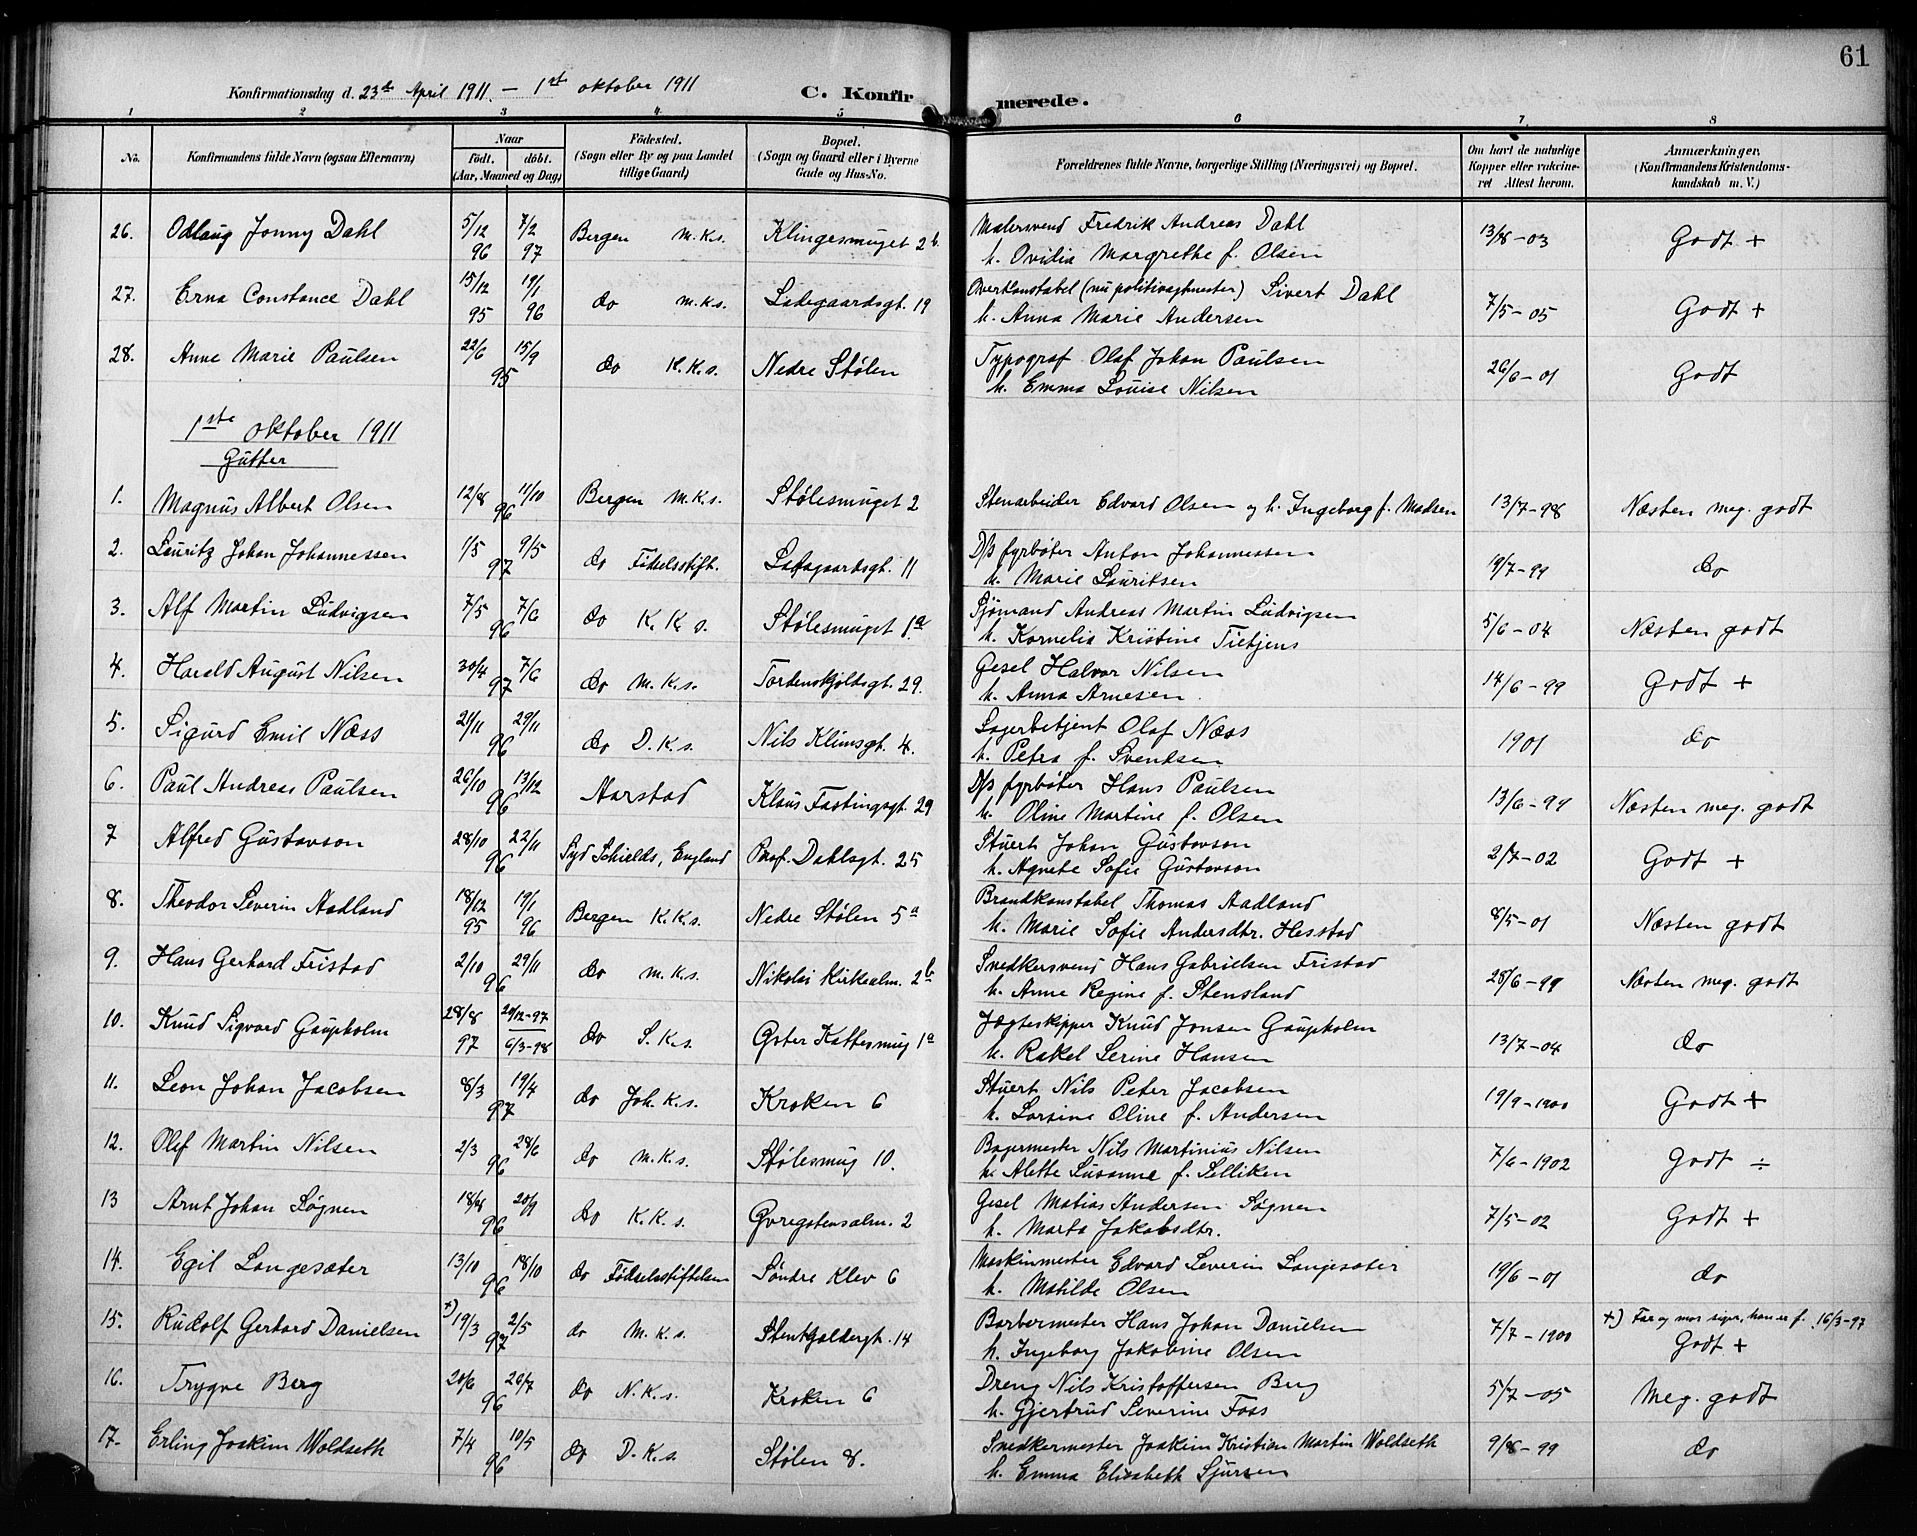 61
Konfirmationsdag d. 23de April 1911 – 1st oktober 1911
C. Konfirmerede.
1 2 3 4 5 6 7 8
No.
Konfirmandens fulde Navn (ogsaa Efternavn)
Naar
født. døbt.
(Aar, Maaned og Dag)
Födested.
(Sogn eller By og paa Landet tillige Gaard)
Bopæl.
(Sogn og Gaard eller i Byerne Gade og Hus-No.
Forældrenes fulde Navne, borgerlige Stilling (Næringsvei) og Bopæl.
Om havt de naturlige Kopper eller vakcineret Attest herom.
Anmærkninger,
(Konfirmandens Kristendomskundskab m. V.)
26. Odlaug Jonny Dahl 5/12 96 7/2 97 Bergen m.K.s. Klingesmuget 2b. Malersvend Fredrik Andreas Dahl 13/8-03 Godt +
h. Ovidia Margrethe f. Olsen
27. Erna Constance Dahl 15/12 95 19/1 96 do m.K.s. Ladegaardsgt. 19 Overkonstabel (nu politivagtmester) Sivert Dahl 7/5-05 Godt +
h. Anna Marie Andersen
28. Anne Marie Paulsen 22/6 15/9 95 do K.K.s. Nedre Stølen Typograf Olaf Johan Paulsen 26/6-01 Godt
h. Emma Louise Nilsen
1ste oktober 1911
Gutter
1. Magnus Albert Olsen 12/8 11/10 96 Bergen m.K.s. Stølesmuget 2 Stenarbeider Edvard Olsen og h. Ingeborg f. Madsen 13/7-98 Næsten meg. godt
2. Lauritz Johan Johannessen 1/5 9/5 97 do Fødselsstift. Ladegaardsgt. 11 D/s fyrbøter Anton Johannessen 19/7-99 do
h. Marie Lauritsen
3. Alf Martin Ludvigsen 7/5 7/6 96 do K.K.s. Stølesmuget 1a Sjømand Andreas Martin Ludvigsen 5/6-04 Næsten godt
h. Kornelia Kristine Tietjens
4. Harald August Nilsen 30/4 7/6 97 do M.K.s. Tordenskjoldsgt. 29. Gesel Halvor Nilsen 14/6-99 Godt +
h. Anna Arnesen
5. Sigurd Emil Næss 21/11 29/11 96 do D.K.s. Nils Klimsgt. 4. Lagerbetjent Olaf Næss 1901 do
h. Petra f. Svendsen
6. Paul Andreas Paulsen 26/10 13/12 96 Aarstad Klaus Fastingsgt. 29 D/s fyrbøter Hans Paulsen 13/6-99 Næsten meg. godt
h. Oline Martine f. Olsen
7 Alfred Gustavson 28/10 22/11 96 Syd Schields, England Prof. Dahlsgt. 25 Stuert Johan Gustavson 2/7-02 Godt +
h. Agnete Sofie Gustavson
8. Theodor Severin Aadland 18/12 95 19/1 96 Bergen K.K.s. Nedre Stølen 5a Brandkonstabel Thomas Aadland 8/5-01 Næsten godt
h. Marie Sofie Andersdtr. Hesstad
9. Hans Gerhard Fristad 2/10 29/11 96 do m.K.s. Nikolai Kirkealm. 2b Snedkersvend Hans Gabrielsen Fristad 28/6-99 Næsten meg. godt
h. Anne Regine f. Stensland
10. Knud Sigvard Gaupholm 28/8 97 29/12-97 6/3-98 do S.K.s. Øster Kattesmug 1a Jægteskipper Knud Jonsen Gaupholm 13/7-04 do
h. Rakel Serine Hansen
11. Leon Johan Jacobsen 8/3 19/4 97 do Joh.K.s. Kroken 6 Stuert Nils Peter Jacobsen 19/9-1900 Godt +
h. Larsine Oline f. Andersen
12. Olaf Martin Nilsen 2/3 28/6 96 do m.K.s. Stølesmug 10. Bagermester Nils Martinius Nilsen 7/6-1902 Godt ÷
h. Alette Susanne f. Selliken
13 Arnt Johan Søgnen 18/8 20/9 96 do K.K.s. Øvregatensalm. 2 Gesel Matias Andersen Søgnen 7/5-02 Godt +
h. Marta Jakobsdtr.
14. Egil Langesæter 13/10 18/10 96 do Fødselsstiftelsen Søndre Klev 6 Maskinmester Edvard Severin Langesæter 19/6-01 do
h. Matilde Olsen
15. Rudolf Gerhard Danielsen +) 19/3 2/5 97 do M.K.s. Stenkjeldergt. 14 Barbermester Hans Johan Danielsen 7/7-1900 +) Far og mor siger, han er f. 16/3-97
h. Ingeborg Jakobine Olsen Godt +
16. Trygve Berg 20/6 26/7 96 do N.K.s. Kroken 6 Dreng Nils Kristoffersen Berg 5/7-05 Meg. godt
h. Gjertrud Severine Foss
17. Erling Joakim Woldseth 7/4 10/5 96 do D.K.s. Stølen 8. Snedkermester Joakim Kristian Martin Woldseth 9/8-99 do
h. Emma Elisabeth Sjursen